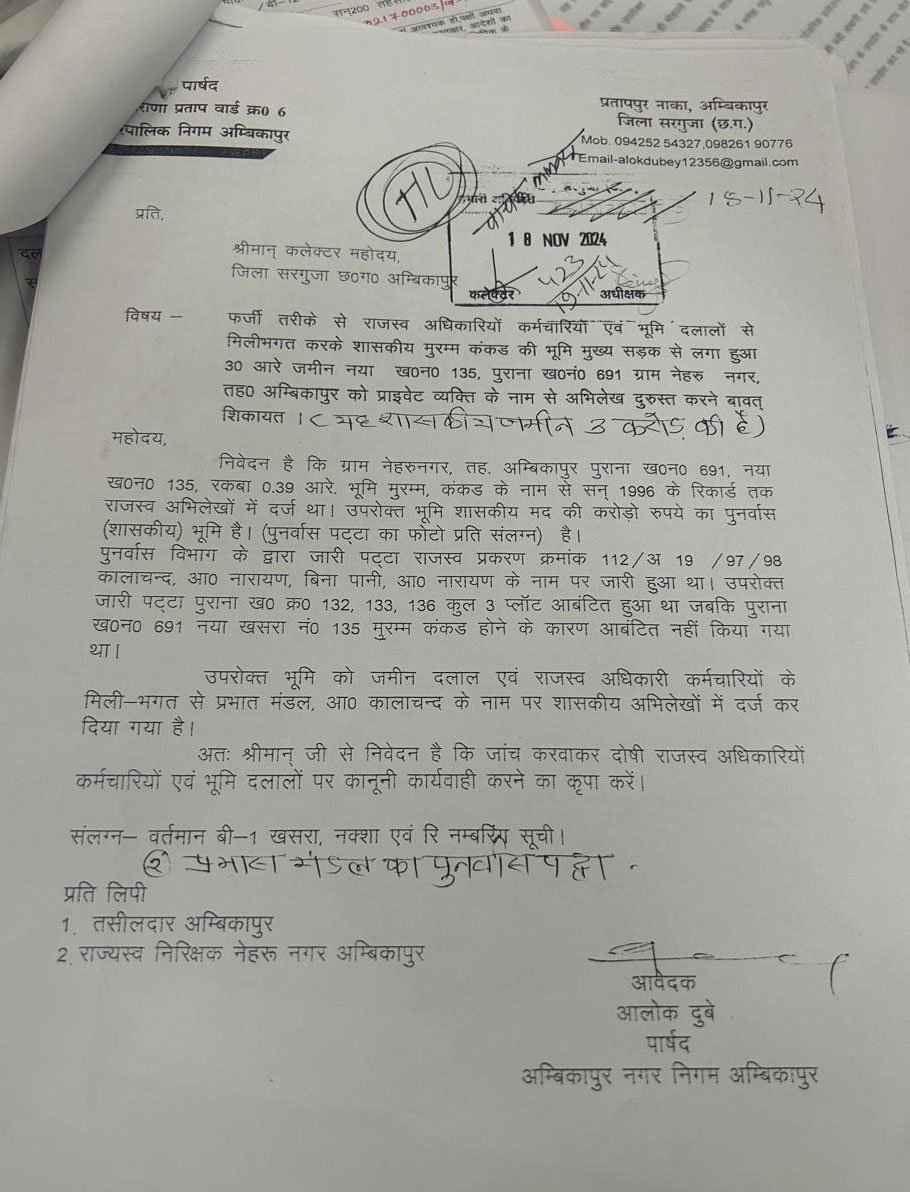 सन्200
21700003
आवश्यक हो,
आदेशों का
पार्षद
राणा प्रताप वार्ड क्र0 6
रपालिक निगम अम्बिकापुर
प्रतापपुर नाका, अम्बिकापुर
जिला सरगुजा (छ.ग.)
Mob. 094252 54327,098261 90776
Email-alokdubey12356@gmail.com
18-11-24
TL
18 NOV 2024
423
19-11-24
कलेक्टर अधीक्षक
प्रति,
श्रीमान् कलेक्टर महोदय,
जिला सरगुजा छ0ग0 अम्बिकापुर
विषय – फर्जी तरीके से राजस्व अधिकारियों कर्मचारियों एवं भूमि दलालों से
मिलीभगत करके शासकीय मुरम्म कंकड की भूमि मुख्य सड़क से लगा हुआ
30 आरे जमीन नया ख0न0 135, पुराना ख0नं0 691 ग्राम नेहरु नगर,
तह0 अम्बिकापुर को प्राइवेट व्यक्ति के नाम से अभिलेख दुरुस्त करने बावत्
शिकायत । (यह शासकीय जमीन 3 करोड़ की है)
महोदय,
निवेदन है कि ग्राम नेहरुनगर, तह. अम्बिकापुर पुराना ख0न0 691, नया
ख0न0 135, रकबा 0.39 आरे. भूमि मुरम्म, कंकड के नाम से सन् 1996 के रिकार्ड तक
राजस्व अभिलेखों में दर्ज था। उपरोक्त भूमि शासकीय मद की करोड़ो रुपये का पुनर्वास
(शासकीय) भूमि है। (पुनर्वास पट्टा का फोटो प्रति संलग्न) है।
पुनर्वास विभाग के द्वारा जारी पट्टा राजस्व प्रकरण क्रमांक 112/अ 19 /97/98
कालाचन्द, आ0 नारायण, बिना पानी, आ0 नारायण के नाम पर जारी हुआ था। उपरोक्त
जारी पट्टा पुराना ख0 क्र0 132, 133, 136 कुल 3 प्लॉट आबंटित हुआ था जबकि पुराना
ख0न0 691 नया खसरा नं0 135 मुरम्म कंकड होने के कारण आबंटित नहीं किया गया
था।
उपरोक्त भूमि को जमीन दलाल एवं राजस्व अधिकारी कर्मचारियों के
मिली–भगत से प्रभात मंडल, आ0 कालाचन्द के नाम पर शासकीय अभिलेखों में दर्ज कर
दिया गया है।
अतः श्रीमान् जी से निवेदन है कि जांच करवाकर दोषी राजस्व अधिकारियों
कर्मचारियों एवं भूमि दलालों पर कानूनी कार्यवाही करने का कृपा करें।
संलग्न– वर्तमान बी–1 खसरा, नक्शा एवं रि नम्बरिंग सूची।
② प्रभास मंडल का पुनर्वास पट्टा .
प्रति लिपी
1. तसीलदार अम्बिकापुर
2. राज्यस्व निरिक्षक नेहरू नगर अम्बिकापुर
आवेदक
आलोक दुबे
पार्षद
अम्बिकापुर नगर निगम अम्बिकापुर